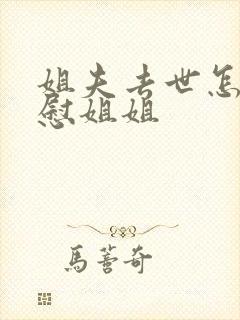 姐夫去世怎
慰姐姐
馬蕾奇